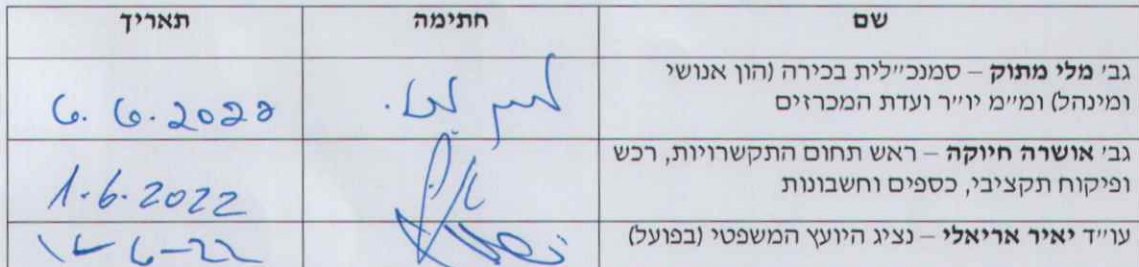 שם חתימה תאריך
גב׳ מלי מתוק – סמנכ״לית בכירה (הון אנושי
ומינהל) ומ״מ יו״ר ועדת המכרזים
6.6.2022
גב׳ אושרה חיוקה – ראש תחום התקשרויות, רכש
ופיקוח תקציבי, כספים וחשבונות
1.6.2022
עו״ד יאיר אריאלי – נציג היועץ המשפטי (בפועל)